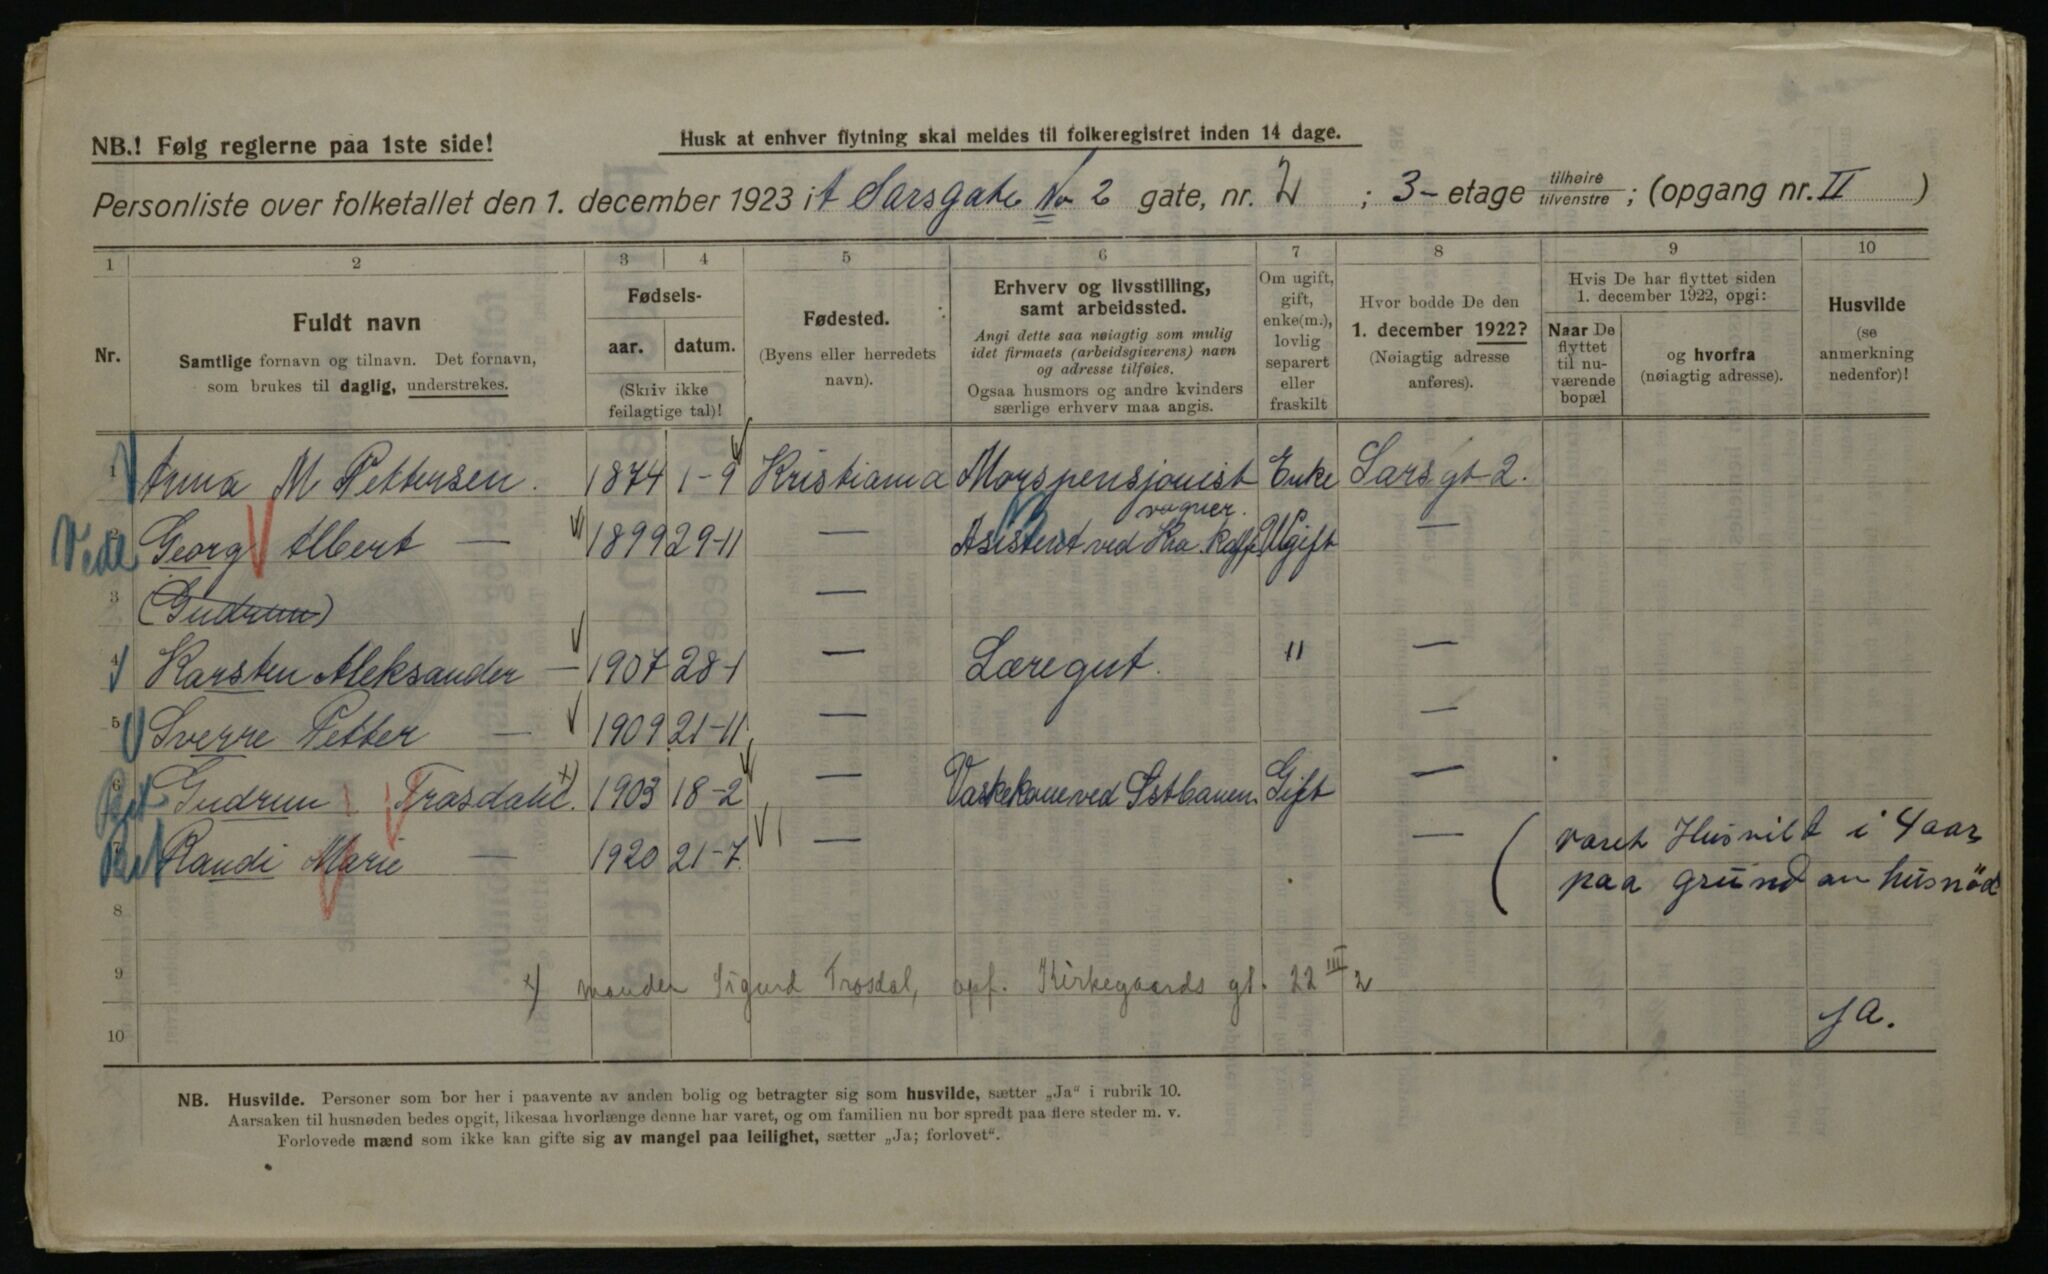 NB.! Følg reglerne paa 1ste side!
Husk at enhver flytning skal meldes til folkeregistret inden 14 dage.
Personliste over folketallet den 1. december 1923 i Sarsgate No 2 gate, nr. 2 ; 3 - etage tilhøire tilvenstre ; (opgang nr. II )
1 2 3 4 5 6 7 8 9 10
Nr.
Fuldt navn
Samtlige fornavn og tilnavn. Det fornavn,
som brukes til daglig, understrekes.
Fødsels-
aar. datum.
(Skriv ikke
feilagtige tal)!
Fødested.
(Byens eller herredets
navn).
Erhverv og livsstilling,
samt arbeidssted.
Angi dette saa nøiagtig som mulig
idet firmaets (arbeidsgiverens) navn
og adresse tilføies.
Ogsaa husmors og andre kvinders
særlige erhverv maa angis.
Om ugift,
gift,
enke(m.),
lovlig
separert
eller
fraskilt
Hvor bodde De den
1. december 1922?
(Nøiagtig adresse
anføres).
Hvis De har flyttet siden
1. december 1922, opgi:
Naar De
flyttet
til nu-
værende
bopæl
og hvorfra
(nøiagtig adresse).
Husvilde
(se
anmerkning
nedenfor)!
1 Anna M Pettersen. 1874 1-9 Kristiania Morspensjonist Enke Sarsgt 2.
vogner.
2 Georg Albert — 1899 29-11 — Asistent ved Kra. Kaffe Ugift —
3 (Gudrun) —
4 Karsten Aleksander — 1907 28-1 — Læregut. " —
5 Sverre Petter — 1909 21-11 — —
6 Gudrun Trosdahl. x) 1903 18-2 — Vaskekone ved Østbanen Gift —
7 Randi Marie — 1920 21-7 — — ( varet Husvilt i 4 aar
paa grund av husnöd
8
9 x) manden Sigurd Trosdal, opf. Kirkegaards gt. 22 III 2
10 ja.
NB. Husvilde. Personer som bor her i paavente av anden bolig og betragter sig som husvilde, sætter „Ja“ i rubrik 10.
Aarsaken til husnøden bedes opgit, likesaa hvorlænge denne har varet, og om familien nu bor spredt paa flere steder m. v.
Forlovede mænd som ikke kan gifte sig av mangel paa leilighet, sætter „Ja; forlovet“.